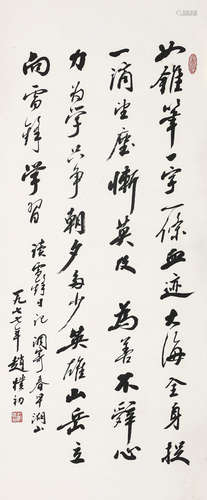 如錐筆一字一條血迹大海全身投
一滴望塵慚莫及為善不辭心
力為學只爭朝夕多少英雄山岳立
向雷鋒學習
讀雷鋒日記調寄春早湖山
一九七七年趙樸初